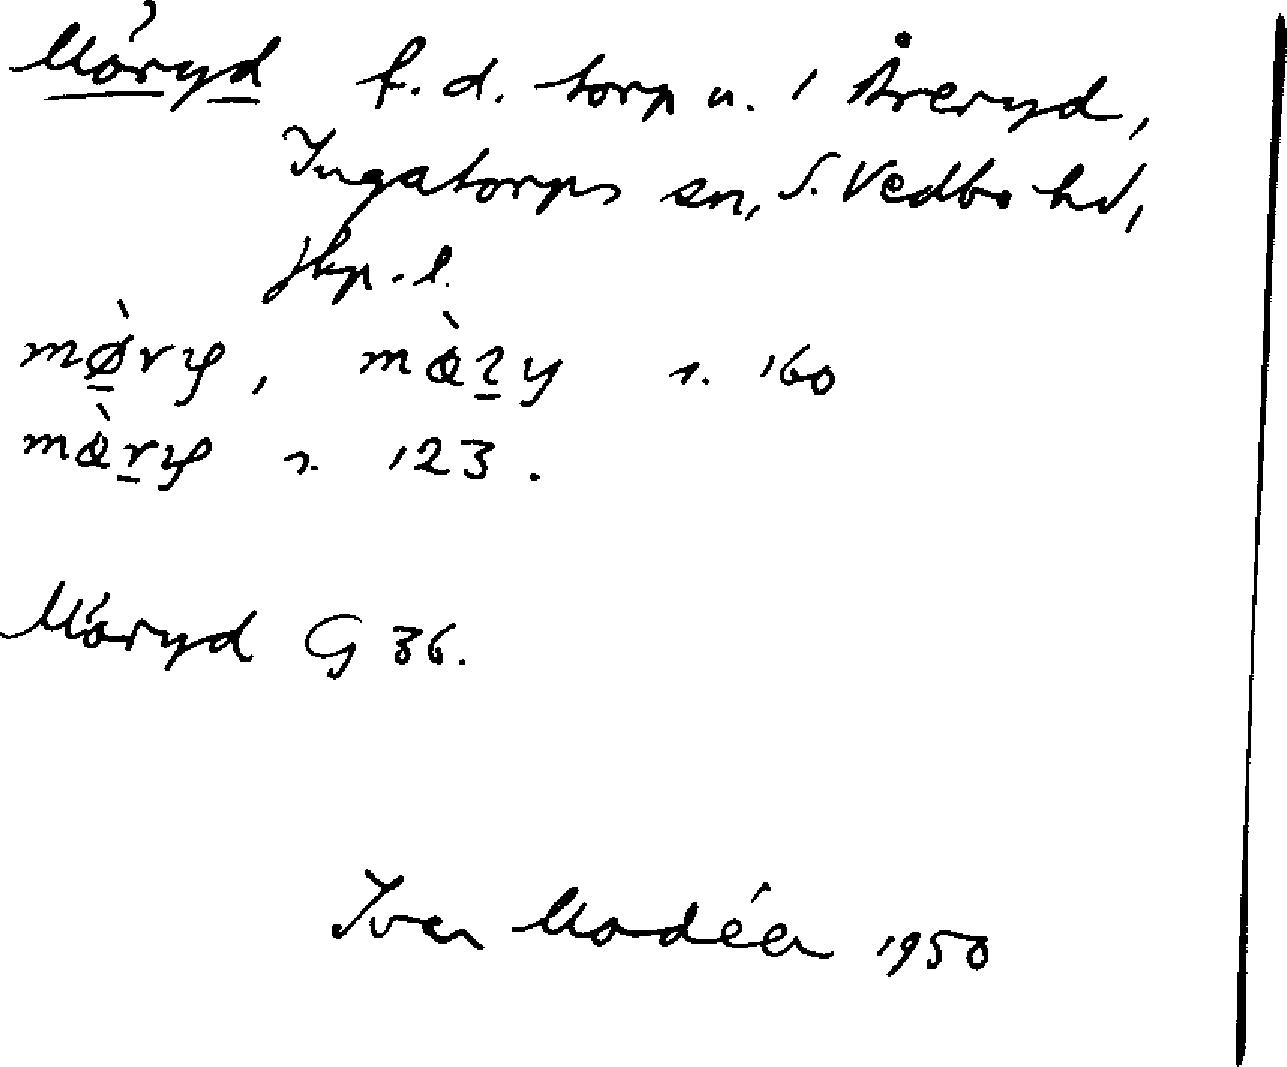 Möryd f.d. torp u. 1 Åreryd,
Ingatorps sn, S. Vedbo hd,
Jkp. l.
mø̀ry, mày s. 160
màry s. 123.
Möryd G 36.
Ivar Modéer 1950